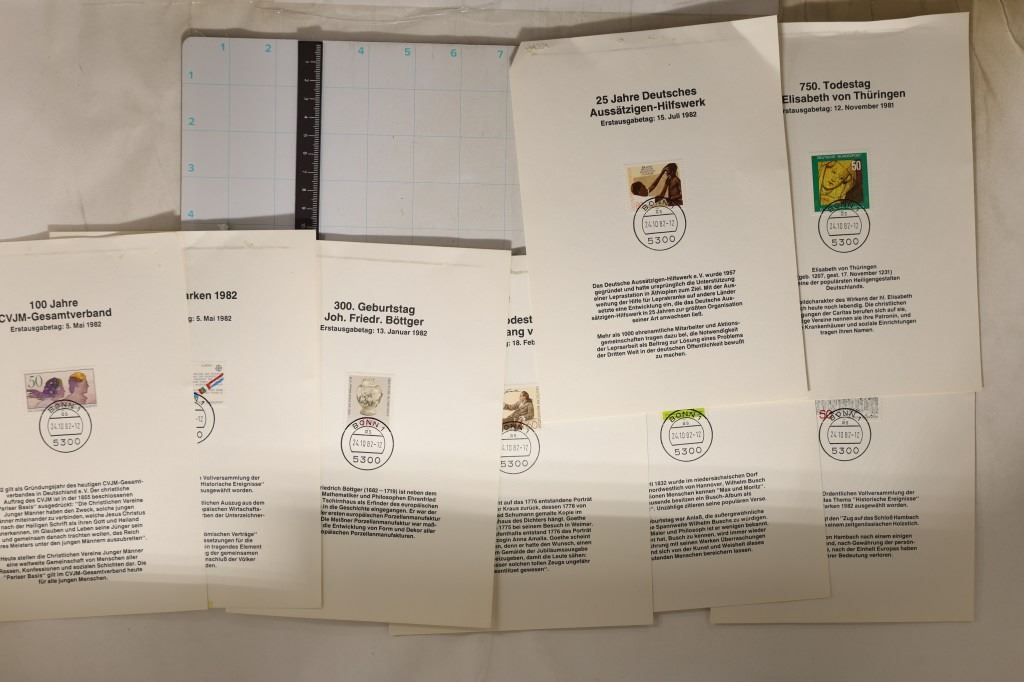 1 2 4 5 6 7
1
2
3
4
25 Jahre Deutsches
Aussätzigen-Hilfswerk
Erstausgabetag: 15. Juli 1982
BONN 1
as
24.10.82-12
5300
Das Deutsche Aussätzigen-Hilfswerk e. V. wurde 1957
gegründet und hatte ursprünglich die Unterstützung
einer Leprastation in Äthiopien zum Ziel. Mit der Aus-
weitung der Hilfe für Leprakranke auf andere Länder
setzte eine Entwicklung ein, die das Deutsche Aus-
sätzigen-Hilfswerk in 25 Jahren zur größten Organisation
seiner Art anwachsen ließ.
Mehr als 1000 ehrenamtliche Mitarbeiter und Aktions-
gemeinschaften tragen dazu bei, die Notwendigkeit
der Lepraarbeit als Beitrag zur Lösung eines Problems
der Dritten Welt in der deutschen Öffentlichkeit bewußt
zu machen.
750. Todestag
Elisabeth von Thüringen
Erstausgabetag: 12. November 1981
DEUTSCHE BUNDESPOST
50
BONN 1
as
24.10.82-12
5300
Elisabeth von Thüringen
geb. 1207, gest. 17. November 1231)
eine der populärsten Heiligengestalten
Deutschlands.
Vorbildcharakter des Wirkens der hl. Elisabeth
heute noch lebendig. Die christlichen
gungen der Caritas berufen sich auf sie,
Vereine nennen sie ihre Patronin, und
Krankenhäuser und soziale Einrichtungen
tragen ihren Namen.
100 Jahre
CVJM-Gesamtverband
Erstausgabetag: 5. Mai 1982
50
BONN 1
as
24.10.82-12
5300
gilt als Gründungsjahr des heutigen CVJM-Gesamt-
verbandes in Deutschland e. V. Der christliche
Auftrag des CVJM ist in der 1855 beschlossenen
"Pariser Basis" ausgedrückt: "Die Christlichen Vereine
Männer haben den Zweck, solche jungen
Männer miteinander zu verbinden, welche Jesus Christus
nach der Heiligen Schrift als ihren Gott und Heiland
anerkennen, im Glauben und Leben seine Jünger sein
und gemeinsam danach trachten wollen, das Reich
Meisters unter den jungen Männern auszubreiten".
Heute stellen die Christlichen Vereine Junger Männer
eine weltweite Gemeinschaft von Menschen aller
Rassen, Konfessionen und sozialen Schichten dar. Die
"Pariser Basis" gilt im CVJM-Gesamtverband heute
für alle jungen Menschen.
arken 1982
5. Mai 1982
Vollversammlung der
"Historische Ereignisse"
ausgewählt worden.
lichen Auszug aus den
opäischen Wirtschafts-
ben der Unterzeichner-
ömischen Verträge"
setzungen für die
tragenden Element
g der gemeinsamen
schluß der Völker
300. Geburtstag
Joh. Friedr. Böttger
Erstausgabetag: 13. Januar 1982
BONN 1
as
24.10.82-12
5300
Friedrich Böttger (1682—1719) ist neben dem
Mathematiker und Philosophen Ehrenfried
Tschirnhaus als Erfinder des europäischen
in die Geschichte eingegangen. Er war
ersten europäischen Porzellanmanufaktur
Die Meißner Porzellanmanufaktur war maß-
die Entwicklung von Form und Dekor aller
europäischen Porzellanmanufakturen.
odest
ang v
18. Feb
BONN 1
24.10.82-12
5300
auf das 1776 entstandene Porträt
Kraus zurück, dessen 1776 von
Schumann gemalte Kopie im
haus des Dichters hängt. Goethe
1775 bei seinem Besuch in Weimar.
entstand 1776 das Porträt
Anna Amalia. Goethe scheint
denn er hatte den Wunsch, einen
Gemälde der Jubiläumsausgabe
zugeben, damit die Leute sähen:
solcher tollen Zeugs ungefähr
BONN 1
as
24.10.82-12
5300
1832 wurde im niedersächsischen Dorf
nordwestlich von Hannover, Wilhelm Busch
Menschen kennen "Max und Moritz".
besitzen ein Busch-Album als
Unzählige zitieren seine populären Verse.
Geburtstag war Anlaß, die außergewöhnliche
Spannweite Wilhelm Buschs zu würdigen.
Maler und Philosoph ist er wenigen bekannt.
hat, Busch zu kennen, wird immer wieder
mit seinen Werken Überraschungen
sich von der Kunst und Weisheit dieses
Menschen bereichern lassen.
50
BONN 1
as
24.10.82-12
5300
Ordentlichen Vollversammlung der
das Thema "Historische Ereignisse"
1982 ausgewählt worden.
den "Zug auf das Schloß Hambach
einem zeitgenössischen Holzstich.
Hambach nach einem einigen
nach Gewährung der persön-
nach der Einheit Europas haben
Bedeutung verloren.